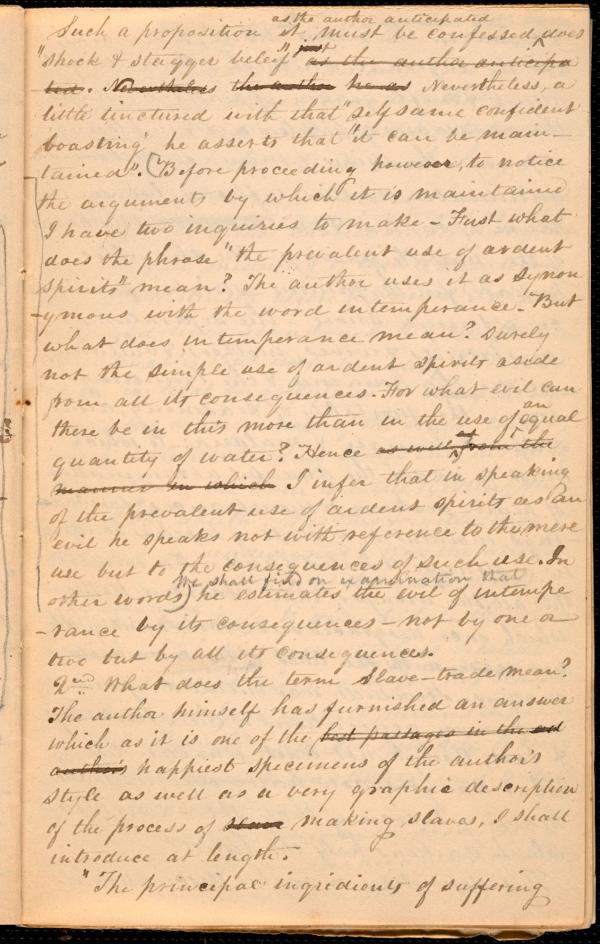 as the author anticipated
Such a proposition it must be confessed does
"shock & stagger belief" just as the author anticipa
ted. Nevertheless the author he as Nevertheless, a
little tinctured with that "selfsame confident
boasting" he asserts that "it can be main-
tained". (Before proceeding however, to notice
the arguments by which it is maintained
I have two inquiries to make - First what
does the phrase "the prevalent use of ardent
spirits" mean? The author uses it as synon
-ymous with the word intemperance. But
what does intemperance mean? Surely
not the simple use of ardent spirits aside
from all its consequences. For what evil can
there be in this more than in the use of an equal
quantity of water? Hence as well as from the
manner in which I infer that in speaking
of the prevalent use of ardent spirits as an
evil he speaks not with reference to the mere
use but to the consequences of such use. In
We shall find on examination that
other words) he estimates the evil of intempe
-rance by its consequences - not by one or
two but by all its consequences.
2nd What does the term Slave-trade mean?
The author himself has furnished an answer
which as it is one of the best passages in the
author's happiest specimens of the author's
style as well as a very graphic description
of the process of slave making slaves, I shall
introduce at length.
"The principal ingridients of suffering